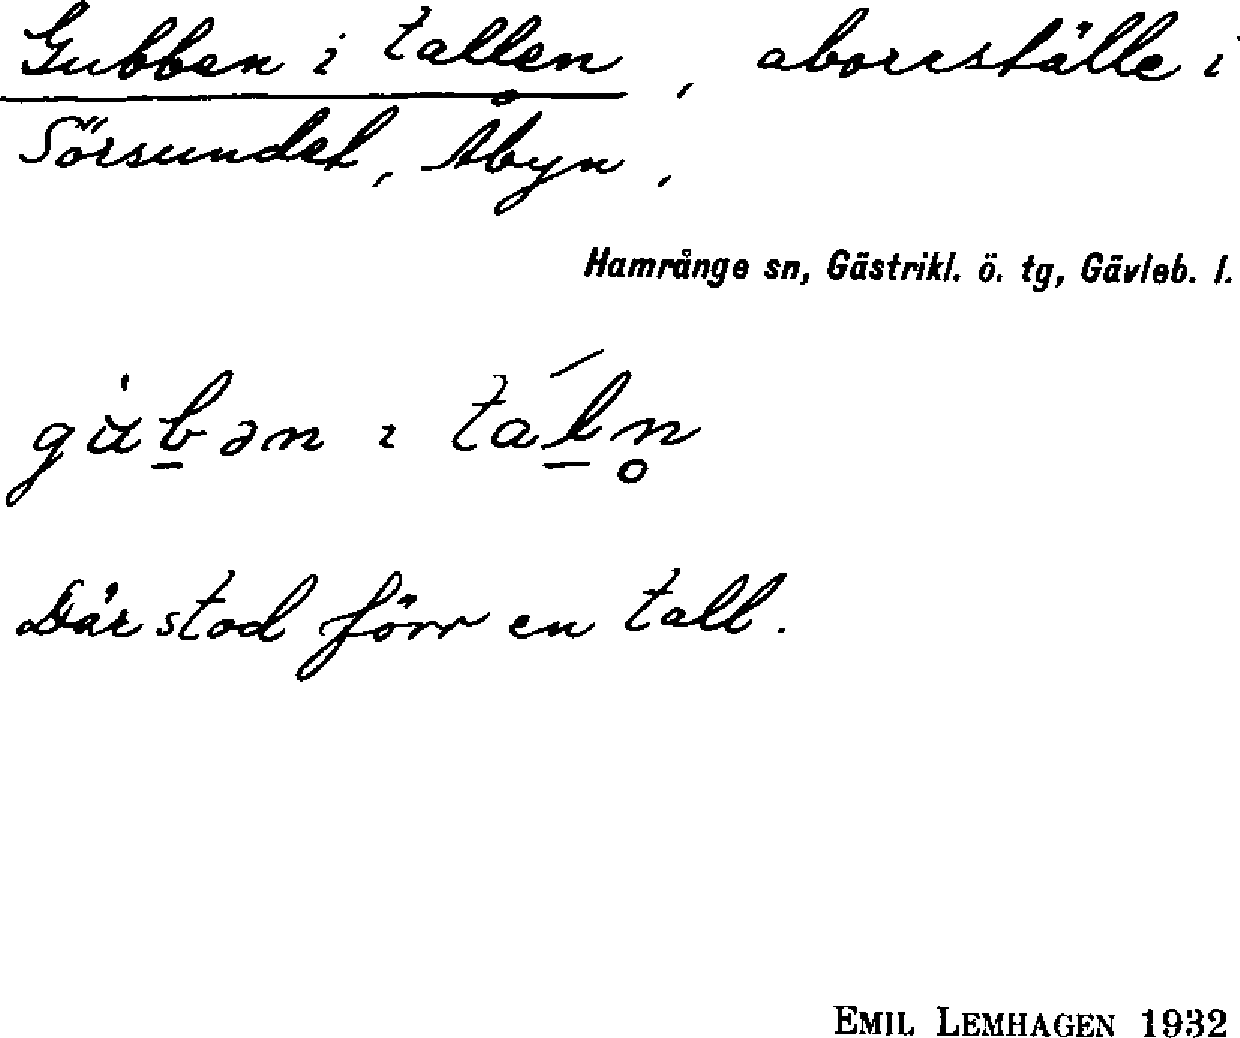 Gubben i tallen, aborrställe i
Sörsundet, Åbyn.
Hamrånge sn, Gästrikl. ö. tg, Gävleb. l.
gùb̲ən ɪ tál̲n̥
Där stod förr en tall.
EMIL LEMHAGEN 1932